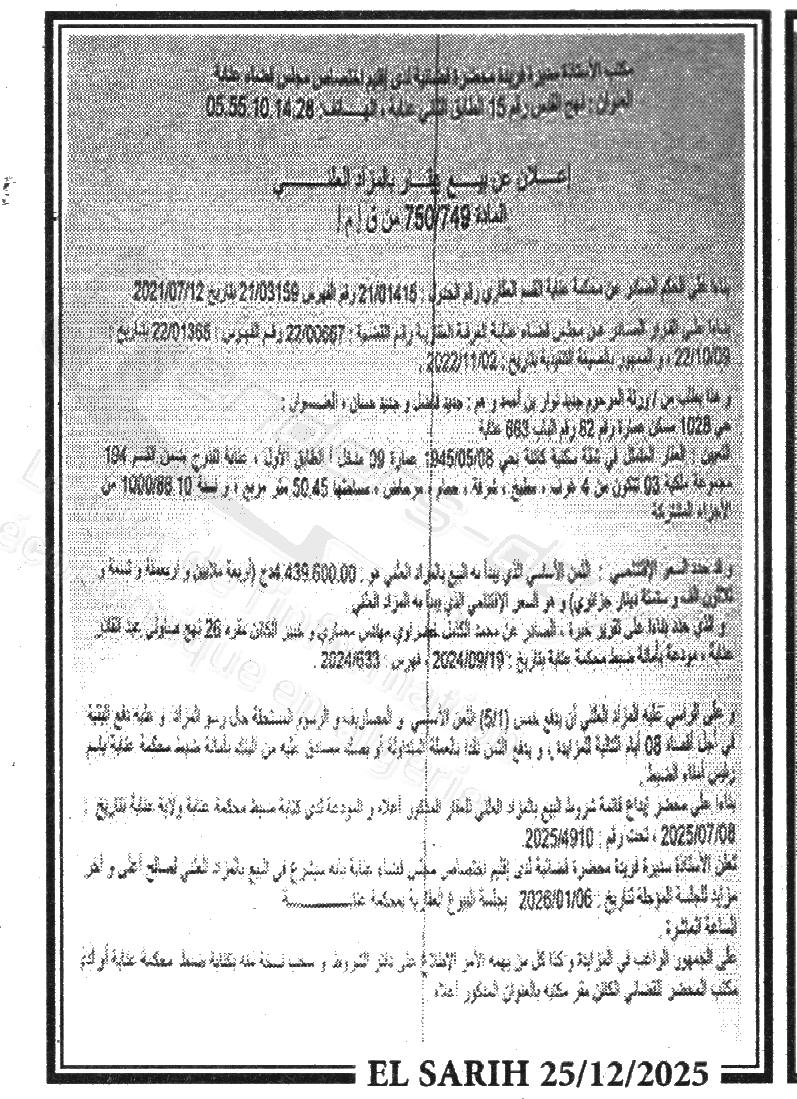 مكتب الأستاذة منيرة فريدة محضرة قضائية لدى إقليم اختصاص مجلس قضاء عنابة
العنوان : نهج القدس رقم 15 الطابق الثاني عنابة ، الهـــاتف: 05.55.10.14.28
إعـــلان عن بيـــع عقـــار بالمزاد العلنـــــي
المادة 750/749 من ق إ م إ
بناءا على الحكم الصادر عن محكمة عنابة القسم العقاري رقم الجدول : 21/01415 رقم الفهرس 21/03159 بتاريخ 2021/07/12
بنـاءا علـى القرار الصـادر عـن مجلس قضـاء عنابة الغرفة العقارية رقـم القضية : 22/00667 رقـم الفهـرس : 22/01365 بتاريخ :
، و الممهور بالصيغة التنفيذية بتاريخ : 2022/11/02 .
و هذا بطلب من / ورثة المرحوم جديد نوار بن أحمد و هم : جديد فاضل و جديد حسان ، العنـــوان :
حي 1028 مسكن عمارة رقم 62 رقم الباب 663 عنابة
التعيين : العقار المتمثل في شقة سكنية كائنة بحي 1945/05/08 عمارة 09 مدخل أ الطابق الأول ، عنابة تندرج ضمن القسم 194
مجموعة ملكية 03 تتكون من 4 غرف ، مطبخ ، شرفة ، حمام ، مرحاض ، مساحتها 50.45 متر مربع ، و نسبة 1000/88.10 من
الأجزاء المشتركة
و قد حدد السعر الإفتتاحي : الثمن الأساسي الذي يبدأ به البيع بالمزاد العلني هو : 4.439.600.00دج (أربعة ملايين و أربعمئة و تسعة و
ثلاثون ألف و ستمئة دينار جزائري) و هو السعر الإفتتاحي الذي يبدأ به المزاد العلني
و الذي حدد بناءا على تقرير خبرة ، الصادر عن محمد الكامل خضراوي مهندس معماري و خبير الكائن مقره 26 نهج عبد القادر
عنابة ، مودعة بأمانة ضبط محكمة عنابة بتاريخ : 2024/09/19 ، فهرس : 2024/633 .
و على الراسي عليه المزاد العلني أن يدفع خمس (5/1) الثمن الأساسي و المصاريف و الرسوم المستحقة حال رسو المزاد و عليه دفع البقية
في أجل أقصاه 08 أيام التالية للمزايدة ، و يدفع الثمن نقدا بالعملة المتداولة أو بصك مصادق عليه من البنك بأمانة ضبط محكمة عنابة باسم
رئيس أمناء الضبط
بناءا على محضر إيداع قائمة شروط البيع بالمزاد العلني للعقار المذكور أعلاه و المودعة لدى كتابة ضبط محكمة عنابة ولاية عنابة بتاريخ :
2025/07/08 ، تحت رقم : 2025/4910.
تعلن الأستاذة منيرة فريدة محضرة قضائية لدى إقليم اختصاص مجلس قضاء عنابة بأنه سيشرع في البيع بالمزاد العلني لصالح أعلى و آخر
مزايد للجلسة المؤجلة بتاريخ : 2026/01/06 بجلسة البيوع العقارية بمحكمة عنابـــــــــة
الساعة العاشرة.
على الجمهور الراغب في المزايدة و كذا كل من يهمه الأمر الإطلاع على دفتر الشروط و سحب نسخة منه بكتابة ضبط محكمة عنابة أو أمام
مكتب المحضر القضائي الكائن مقر مكتبه بالعنوان المذكور أعلاه
EL SARIH 25/12/2025